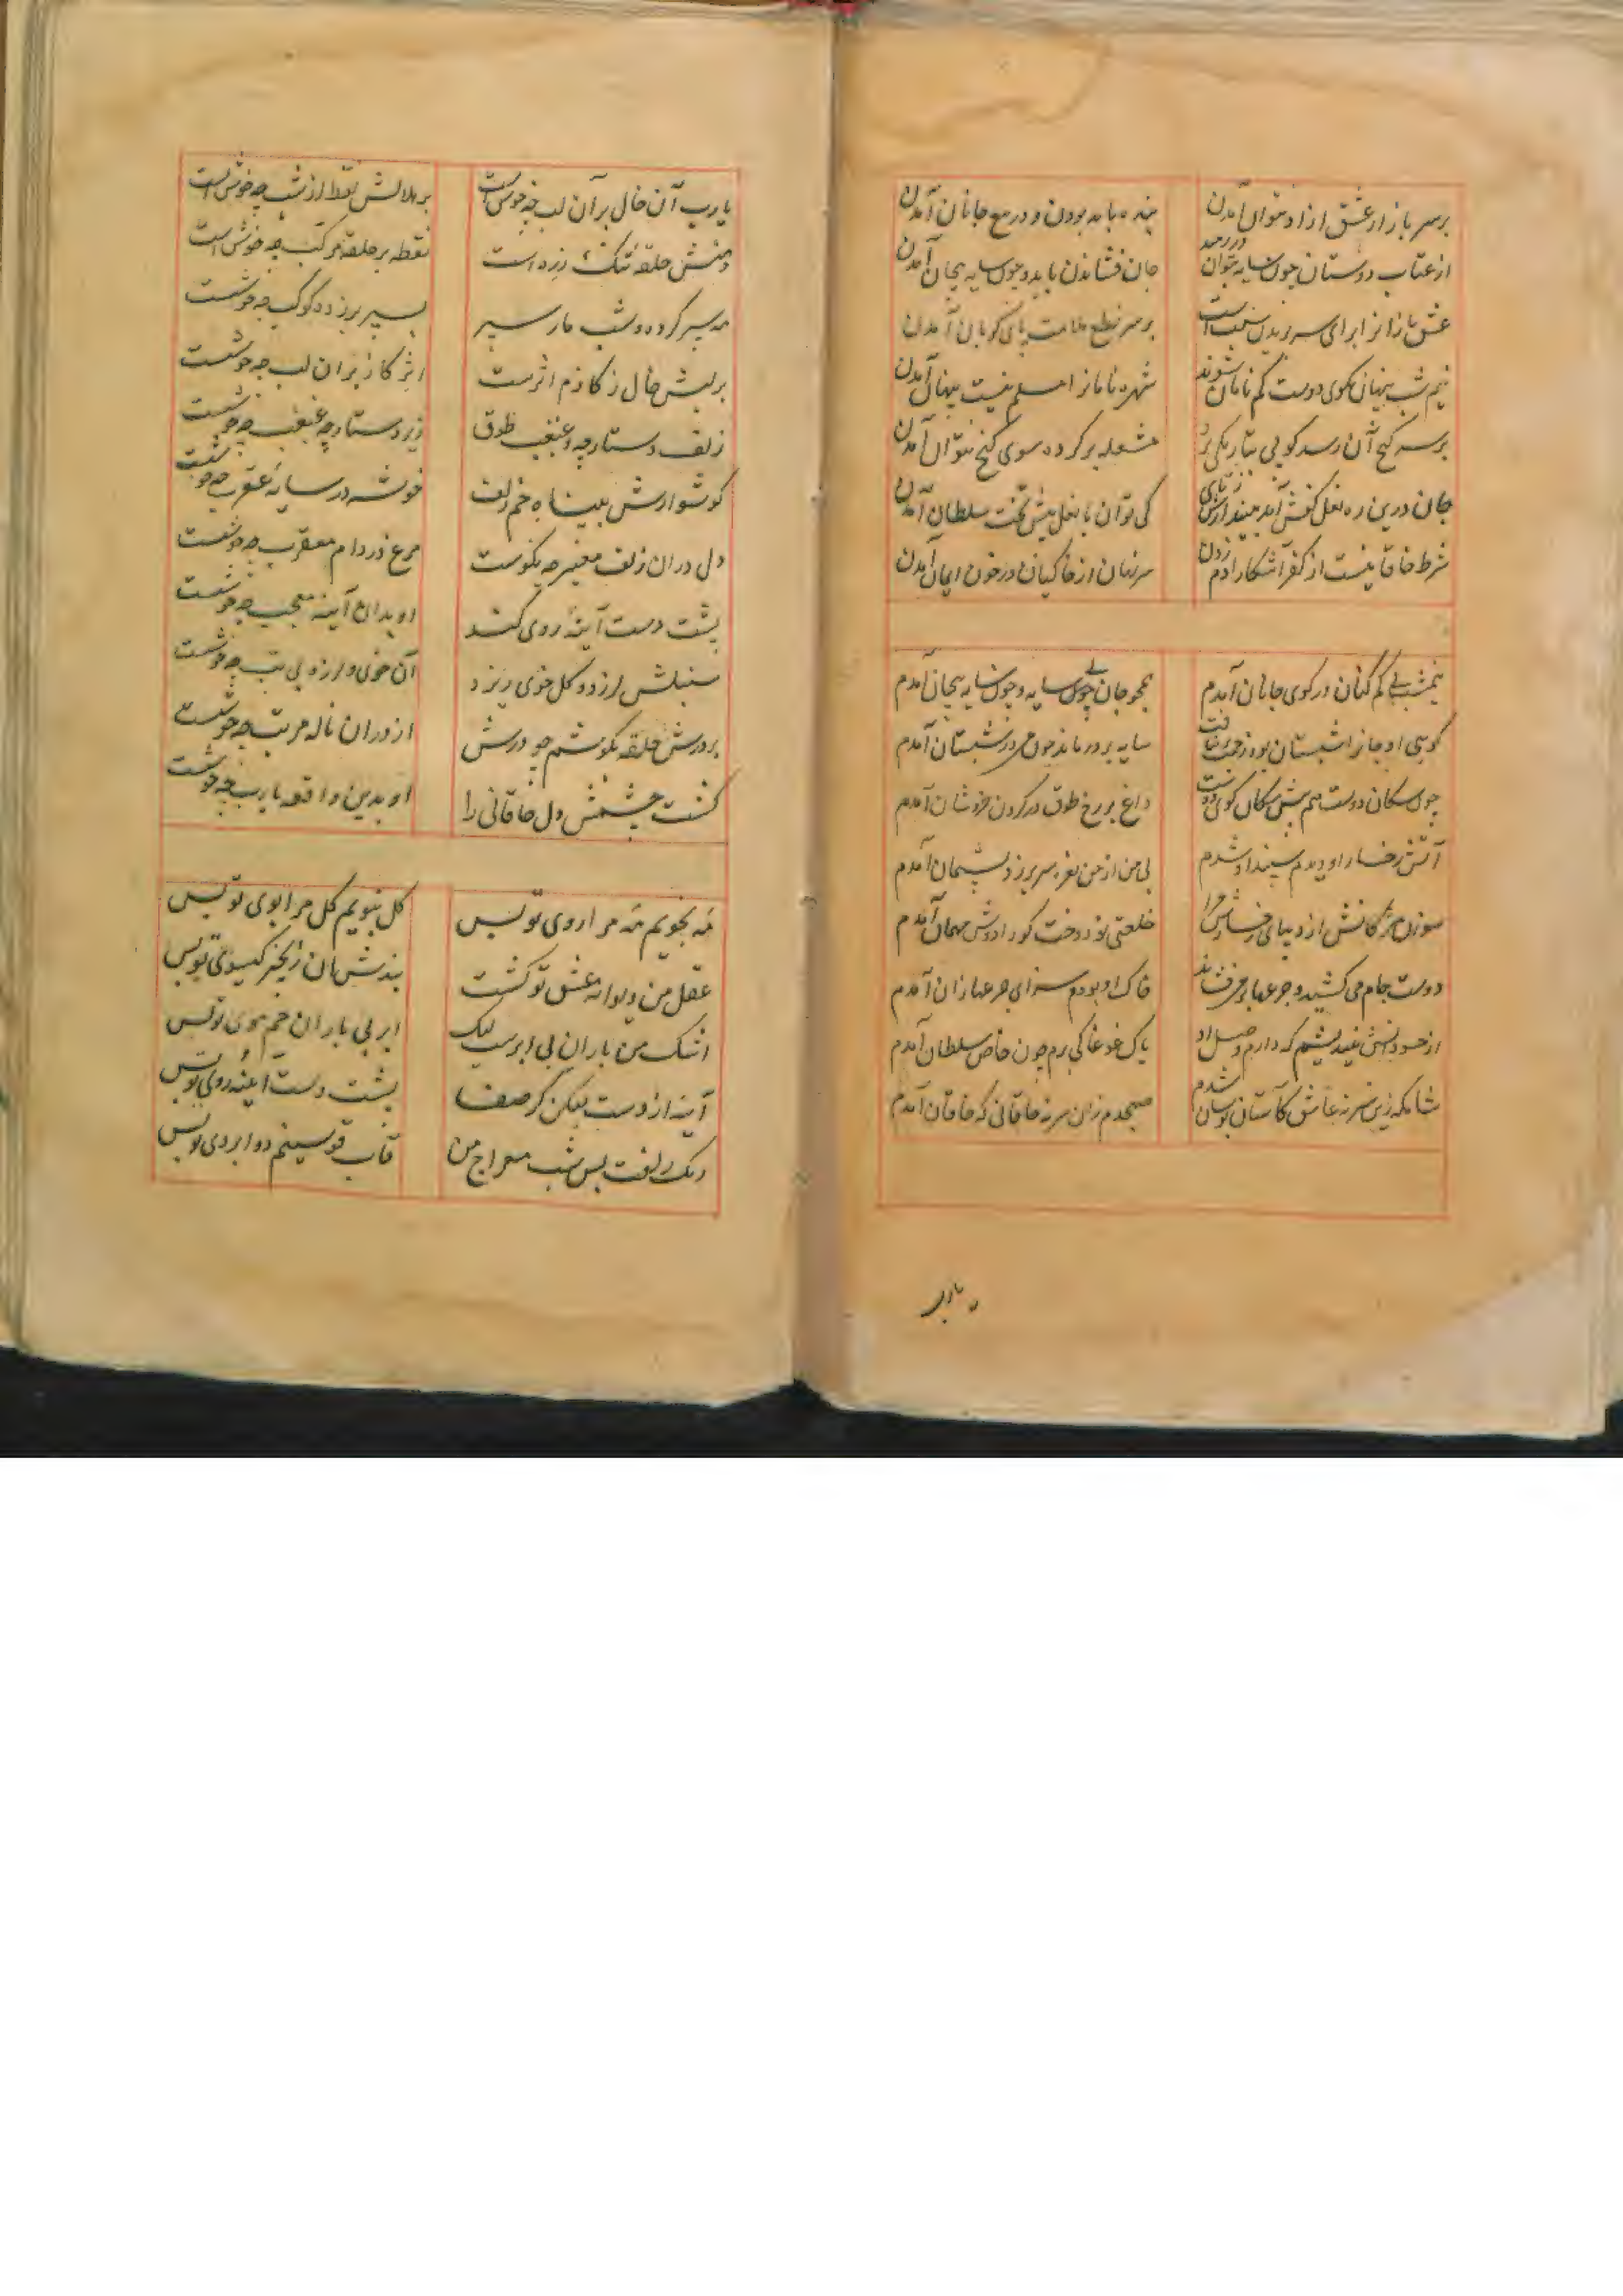 بر سر بازار عشق ازاد نتوان آمدن
بنده باید بودن و در بیع جانان آمدن
از عتاب دوستان چون سایه نتوان در رمید
جان فشاندن باید و چون سایه بیجان آمدن
عشق بازانرا برای سر بریدن سنت است
بر سر نطع ملامت پای کوبان آمدن
نیم شب پنهان بکوی دوست کم نامان شوند
شهره نامانرا مسلم نیست پنهان آمدن
بر سر کنج آن رسد کو پی بتاریکی برد
مشعله بر کرده سوی کنج نتوان آمدن
جان درین ره نعل کفش آمد بیندازش ز پای
کی توان با نعل پیش تخت سلطان آمدن
شرط خاقانیست از کفر آشکارا دم زدن
سر نهان از خاکیان در خون ایمان آمدن
نیمشب پی کم کنان در کوی جانان آمدم
همچو جان بی سایه و چون سایه بیجان آمدم
کوییی او جانرا شبستان بود زحمت برنتافت
سایه بر در ماند چون من در شبستان آمدم
چون سکان دوست هم پیش سکان کوی دوست
داغ بر رخ طوق در کردن خروشان آمدم
آتش رخسار او دیدم سپند او شدم
بی من از من نعره سر بر زد پشیمان آمدم
سوزن مژکانش از دیبای رخسارش مرا
خلعتی نو دوخت کو را دوش مهمان آمدم
دوست جام می کشید و جرعها بر من فشاند
خاک او بودم سزای جرعها زان آمدم
از حسودانش نیندیشم که دارم وصل او
باک غوغا کی برم چون خاص سلطان آمدم
شامکه زین سرنه عاشق کآستان بوسان شدم
صبحدم زان سر نه خاقانی که خاقان آمدم
یارب
یارب آن خال بر آن لب چه خوش است
بر هلالش نقط از شب چه خوش است
دهنش حلقه تنک زره است
نقطه بر حلقه مرکب چه خوش است
مه سپر کرده و شب ماه سپر
بسپر بر زده کوکب چه خوشست
بر لبش خال ز کازم اثرست
اثر کاز بران لب چه خوشست
زلف و دستارچه و غبغب طوق
زیر دستارچه غبغب چه خوشست
کوشوارش ببیناه خم زلف
خوشه در سایه عقرب چه خوشست
دل دران زلف معنبر چه نکوست
مرغ در دام معقرب چه خوشست
پشت دست آینه روی کند
او بدان آینه معجب چه خوشست
سنبلش لرزد و کل خوی ریزد
آن خوی و لرزه بی تب چه خوشست
بر درش حلقه بکوشم چو درش
از دران ناله مرتب چه خوشست
کشت چشمش دل خاقانی را
او بدین واقعه یارب چه خوشست
مه نجویم مه مرا روی تو بس
کل نبویم کل مرا بوی تو بس
عقل من دیوانه عشق تو کشت
بندش آن زنجیر کیسوی تو بس
اشک من باران بی ابرست لیک
ابر بی باران خم موی تو بس
آینه از دست بیکن کز صفا
پشت دست آینه روی تو بس
رنک زلفت بس شب معراج من
قاب قوسینم دو ابروی تو بس